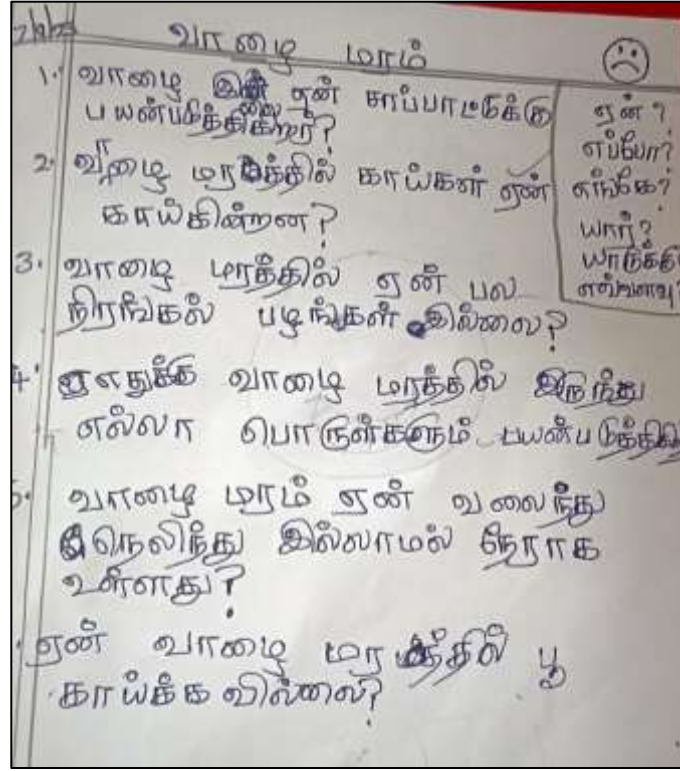 வாழை மரம்
1. வாழை இலை ஏன் சாப்பாட்டுக்கு
பயன்படுத்திகிறார்?
2. வாழை மரத்தில் காய்கள் ஏன்
காய்கின்றன?
3. வாழை மரத்தில் ஏன் பல
நிரங்கல் பழங்கள் இல்லை?
4. எதுக்கு வாழை மரத்தில் இருந்து
எல்லா பொருள்களும்
5. வாழை மரம் ஏன் வலைந்து
நெலிந்து இல்லாமல் நேராக
உள்ளது?
ஏன் வாழை மரத்தில் பூ
காய்க்க வில்லை?
ஏன்?
எப்போ?
எங்கே?
யார்?
எவ்வளவு?